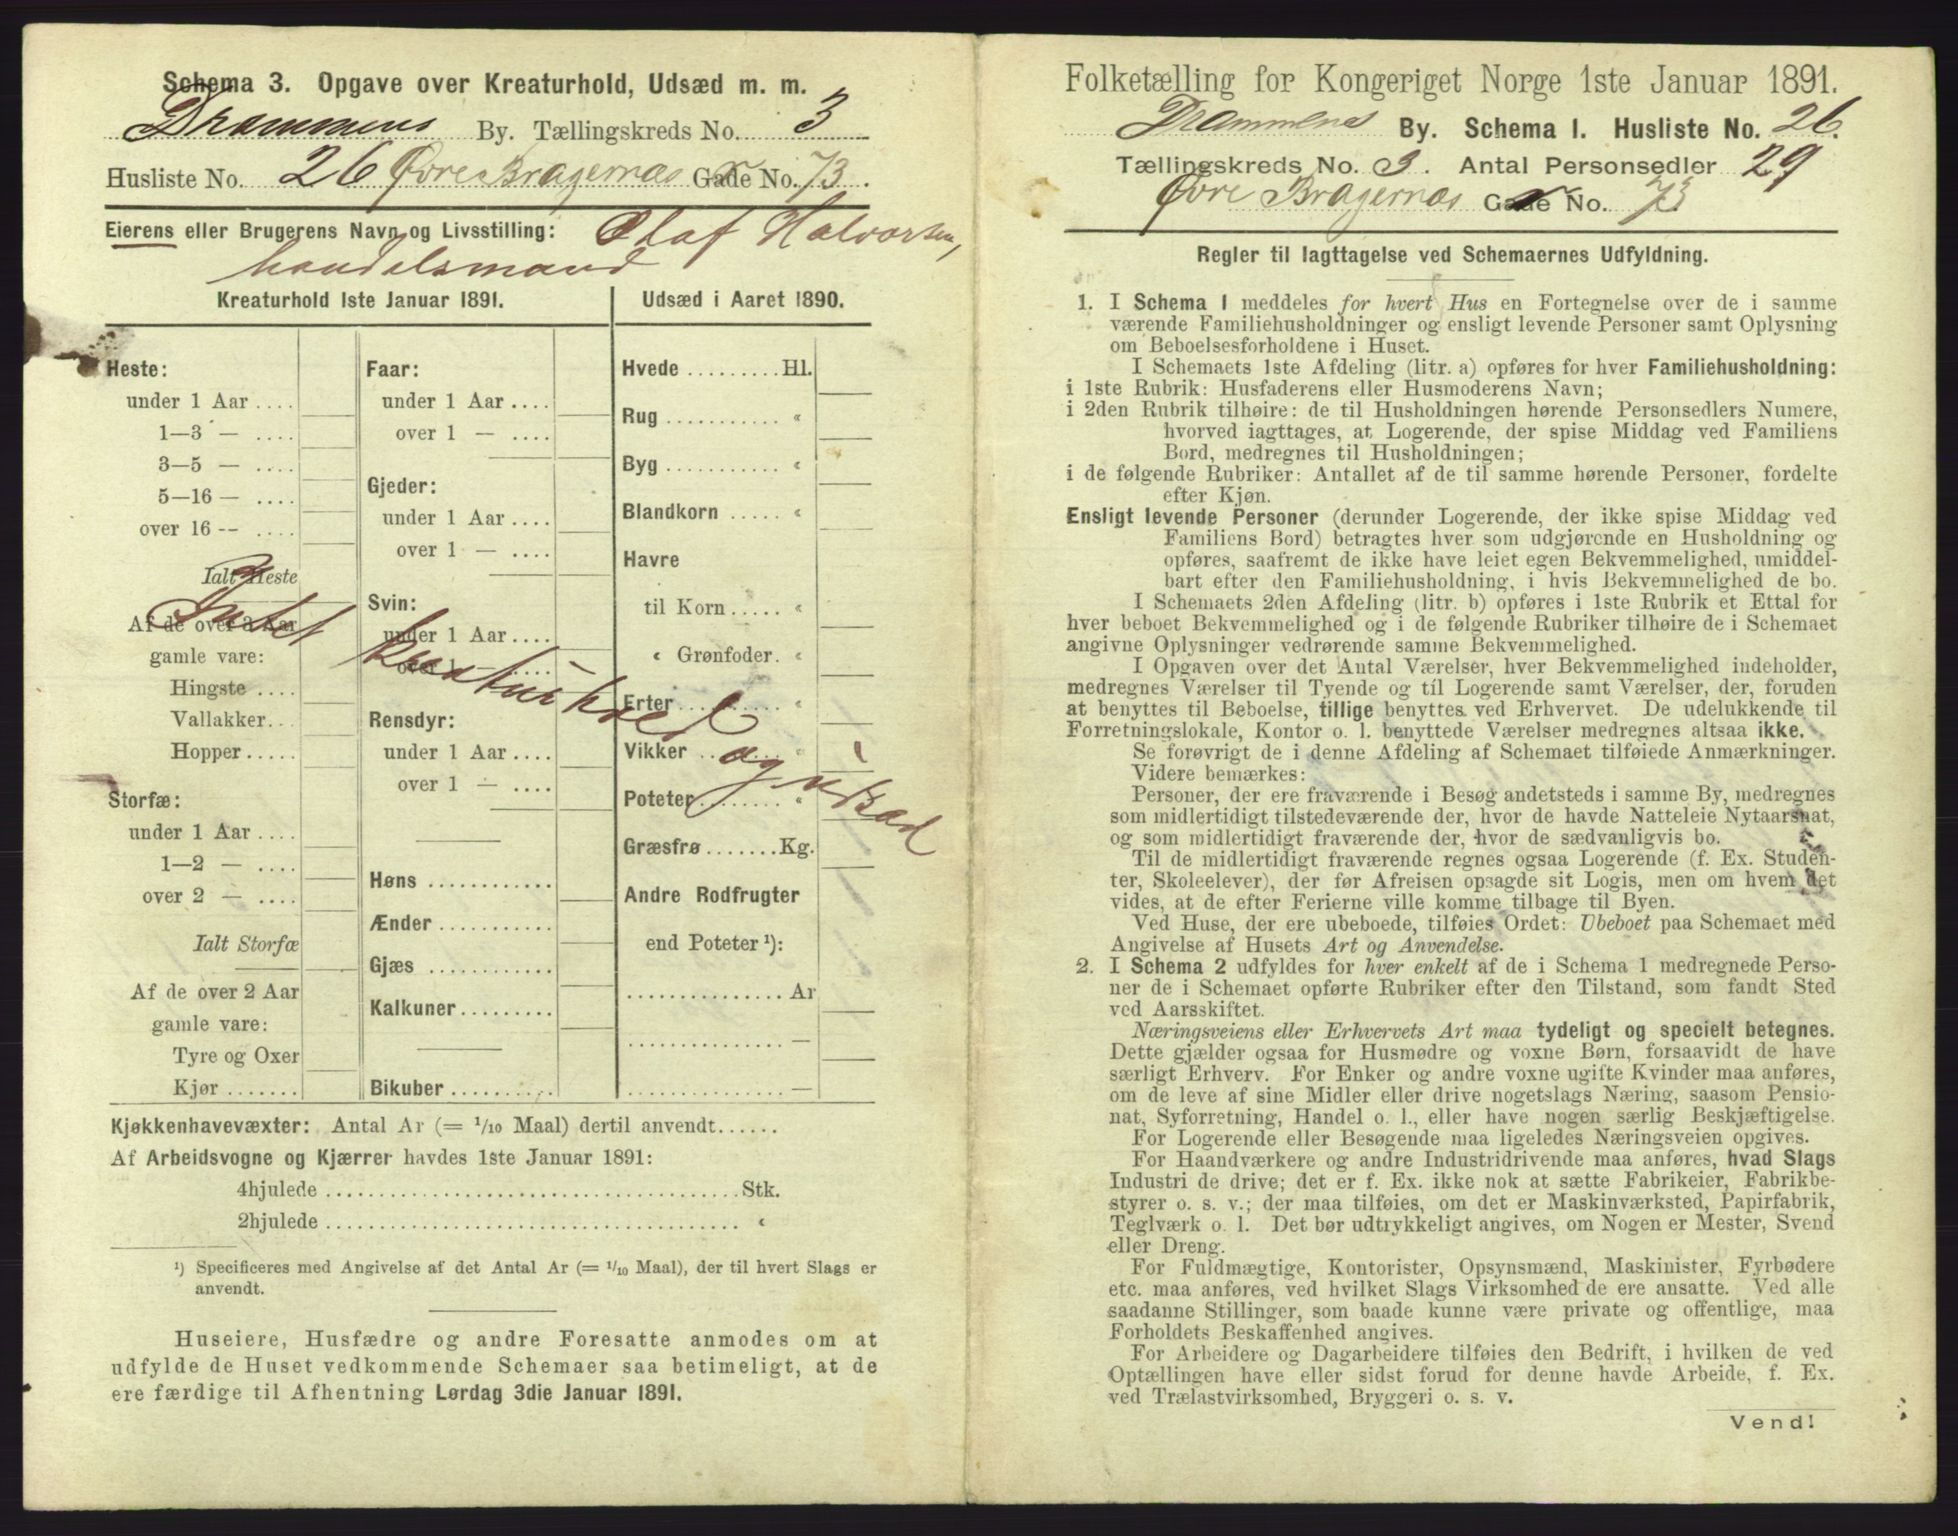 Schema 3. Opgave over Kreaturhold, Udsæd m. m.
Drammens By. Tællingskreds No. 3
Husliste No. 26 Øvre Bragernæs Gade No. 73.
Eierens eller Brugerens Navn og Livsstilling: Olaf Halvorsen,
handelsmand
Kreaturhold 1ste Januar 1891.
Heste:
under 1 Aar ....
1—3 — ....
3—5 — ....
5—16 — ....
over 16 -- ....
Ialt Heste
Af de over 3 Aar
gamle vare:
Hingste ....
Vallakker...
Hopper.....
Storfæ:
under 1 Aar ....
1—2 — ....
over 2 — ....
Ialt Storfæ
Af de over 2 Aar
gamle vare:
Tyre og Oxer
Kjør .......
Faar:
under 1 Aar ....
over 1 — ....
Gjeder:
under 1 Aar ....
over 1 — ....
Svin:
under 1 Aar ....
over 1 — ....
Rensdyr:
under 1 Aar ....
over 1 — ....
Høns ............
Ænder ...........
Gjæs ............
Kalkuner.........
Bikuber ..........
Udsæd i Aaret 1890.
Hvede .........Hl.
Rug ........... «
Byg ........... «
Blandkorn ..... «
Havre
til Korn..... «
« Grønfoder. «
Erter .......... «
Vikker ........ «
Poteter........ «
Græsfrø .......Kg.
Andre Rodfrugter
end Poteter ¹):
............... Ar
............... —
............... —
Intet kreaturhold og udsæd
Kjøkkenhavevæxter: Antal Ar (= 1/10 Maal) dertil anvendt......
Af Arbeidsvogne og Kjærrer havdes 1ste Januar 1891:
4hjulede .......................................Stk.
2hjulede ....................................... «
¹) Specificeres med Angivelse af det Antal Ar (= 1/10 Maal), der til hvert Slags er
anvendt.
Huseiere, Husfædre og andre Foresatte anmodes om at
udfylde de Huset vedkommende Schemaer saa betimeligt, at de
ere færdige til Afhentning Lørdag 3die Januar 1891.
Folketælling for Kongeriget Norge 1ste Januar 1891.
Drammens By. Schema I. Husliste No. 26.
Tællingskreds No. 3. Antal Personsedler 29
Øvre Bragernæs Gade No. 73
Regler til Iagttagelse ved Schemaernes Udfyldning.
1. I Schema I meddeles for hvert Hus en Fortegnelse over de i samme
værende Familiehusholdninger og ensligt levende Personer samt Oplysning
om Beboelsesforholdene i Huset.
I Schemaets 1ste Afdeling (litr. a) opføres for hver Familiehusholdning:
i 1ste Rubrik: Husfaderens eller Husmoderens Navn;
i 2den Rubrik tilhøire: de til Husholdningen hørende Personsedlers Numere,
hvorved iagttages, at Logerende, der spise Middag ved Familiens
Bord, medregnes til Husholdningen;
i de følgende Rubriker: Antallet af de til samme hørende Personer, fordelte
efter Kjøn.
Ensligt levende Personer (derunder Logerende, der ikke spise Middag ved
Familiens Bord) betragtes hver som udgjørende en Husholdning og
opføres, saafremt de ikke have leiet egen Bekvemmelighed, umiddel-
bart efter den Familiehusholdning, i hvis Bekvemmelighed de bo.
I Schemaets 2den Afdeling (litr. b) opføres i 1ste Rubrik et Ettal for
hver beboet Bekvemmelighed og i de følgende Rubriker tilhøire de i Schemaet
angivne Oplysninger vedrørende samme Bekvemmelighed.
I Opgaven over det Antal Værelser, hver Bekvemmelighed indeholder,
medregnes Værelser til Tyende og til Logerende samt Værelser, der, foruden
at benyttes til Beboelse, tillige benyttes ved Erhvervet. De udelukkende til
Forretningslokale, Kontor o. l. benyttede Værelser medregnes altsaa ikke.
Se forøvrigt de i denne Afdeling af Schemaet tilføiede Anmærkninger.
Videre bemærkes:
Personer, der ere fraværende i Besøg andetsteds i samme By, medregnes
som midlertidigt tilstedeværende der, hvor de havde Natteleie Nytaarsnat,
og som midlertidigt fraværende der, hvor de sædvanligvis bo.
Til de midlertidigt fraværende regnes ogsaa Logerende (f. Ex. Studen-
ter, Skoleelever), der før Afreisen opsagde sit Logis, men om hvem det
vides, at de efter Ferierne ville komme tilbage til Byen.
Ved Huse, der ere ubeboede, tilføies Ordet: Ubeboet paa Schemaet med
Angivelse af Husets Art og Anvendelse.
2. I Schema 2 udfyldes for hver enkelt af de i Schema 1 medregnede Perso-
ner de i Schemaet opførte Rubriker efter den Tilstand, som fandt Sted
ved Aarsskiftet.
Næringsveiens eller Erhvervets Art maa tydeligt og specielt betegnes.
Dette gjælder ogsaa for Husmødre og voxne Børn, forsaavidt de have
særligt Erhverv. For Enker og andre voxne ugifte Kvinder maa anføres,
om de leve af sine Midler eller drive nogetslags Næring, saasom Pensio-
nat, Syforretning, Handel o. l., eller have nogen særlig Beskjæftigelse.
For Logerende eller Besøgende maa ligeledes Næringsveien opgives.
For Haandværkere og andre Industridrivende maa anføres, hvad Slags
Industri de drive; det er f. Ex. ikke nok at sætte Fabrikeier, Fabrikbe-
styrer o. s. v.; der maa tilføies, om det er Maskinværksted, Papirfabrik,
Teglværk o. l. Det bør udtrykkeligt angives, om Nogen er Mester, Svend
eller Dreng.
For Fuldmægtige, Kontorister, Opsynsmænd, Maskinister, Fyrbødere
etc. maa anføres, ved hvilket Slags Virksomhed de ere ansatte. Ved alle
saadanne Stillinger, som baade kunne være private og offentlige, maa
Forholdets Beskaffenhed angives.
For Arbeidere og Dagarbeidere tilføies den Bedrift, i hvilken de ved
Optællingen have eller sidst forud for denne havde Arbeide, f. Ex.
ved Trælastvirksomhed, Bryggeri o. s. v.
Vend!